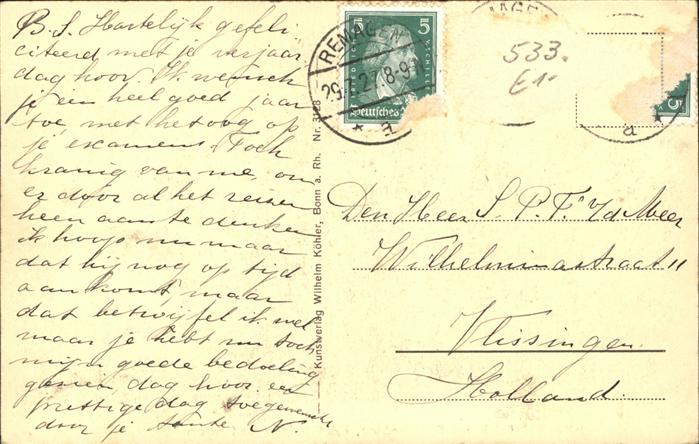 B. S. Hartelijk gefeli
citeerd met je verjaar
dag hoor. Ik wensch
je een heel goed jaar
toe met het oog op
je examens. Toch
kranig van me, om
er door al het reizen
heen aan te denken
ik hoop nu maar
dat hij nog op tijd
aankomt maar
dat betwijfel ik wel
maar je hebt nu toch
mijn goede bedoeling
hoor. een
prettige dag toegewenscht
door je tante N.
REMAGEN
8-9
5
5
Deutsches
a
533.
E1-
5
a
Kunstverlag Wilhelm Köhler, Bonn a. Rh. Nr. 3128
Den Heer S. P. F. v/d Meer
Wilhelminastraat 11
Vlissingen.
Holland.